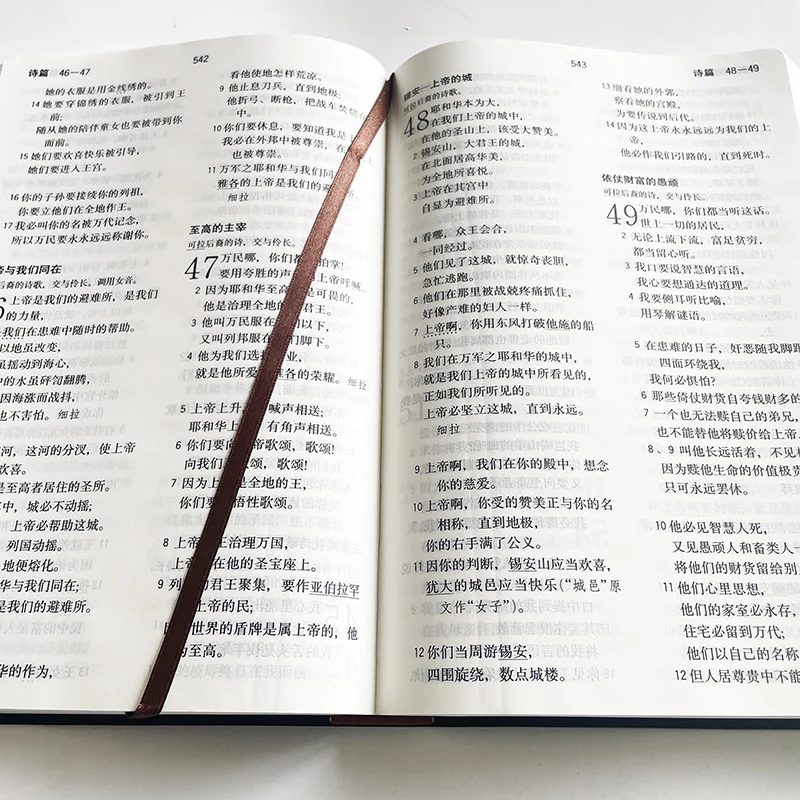 诗篇 46—47
542
她的衣服是用金线绣的。
14 她要穿锦绣的衣服，被引到王
前；
随从她的陪伴童女也要被带到你
面前。
15 她们要欢喜快乐被引导，
她们要进入王宫。
16 你的子孙要接续你的列祖，
你要立他们在全地作王。
17 我必叫你的名被万代记念，
所以万民要永永远远称谢你。
帝与我们同在
后裔的诗歌，交与伶长。调用女音。
上帝是我们的避难所，是我们
的力量，
我们在患难中随时的帮助。
以地虽改变，
虽摇动到海心，
中的水虽砰訇翻腾，
因海涨而战抖，
也不害怕。细拉
河，这河的分汊，使上帝
欢喜。
是至高者居住的圣所。
中，城必不动摇；
上帝必帮助这城。
列国动摇。
地便熔化。
华与我们同在；
是我们的避难所。
华的作为，
看他使地怎样荒凉。
9 他止息刀兵，直到地极；
他折弓、断枪，把战车焚烧在
中。
10 你们要休息，要知道我是上
我必在外邦中被尊崇，在
也被尊崇。
11 万军之耶和华与我们同
雅各的上帝是我们的避
细拉
至高的主宰
可拉后裔的诗，交与伶长。
47 万民哪，你们都 拍掌！
要用夸胜的声 上帝呼喊
2 因为耶和华至高 是可畏的，
他是治理全地的 君王。
3 他叫万民服在 们以下，
又叫列邦服在 们脚下。
4 他为我们选择 业，
就是他所爱 雅各的荣耀。细拉
5 上帝上升 喊声相送；
耶和华上 有角声相送。
6 你们要向 帝歌颂，歌颂！
向我们 歌颂，歌颂！
7 因为上 是全地的王，
你们要 悟性歌颂。
8 上帝 王治理万国，
上帝 在他的圣宝座上。
9 列 的君王聚集，要作亚伯拉罕
上帝的民；
因 世界的盾牌是属上帝的，他
为至高。
543
诗篇 48—49
锡安—上帝的城
可拉后裔的诗歌。
48 耶和华本为大，
在我们上帝的城中，
在他的圣山上，该受大赞美。
2 锡安山，大君王的城，
在北面居高华美，
为全地所喜悦。
3 上帝在其宫中
自显为避难所。
4 看哪，众王会合，
一同经过。
5 他们见了这城，就惊奇丧胆，
急忙逃跑。
6 他们在那里被战兢疼痛抓住，
好像产难的妇人一样。
7 上帝啊，你用东风打破他施的船
只。
8 我们在万军之耶和华的城中，
就是我们上帝的城中所看见的，
正如我们所听见的。
上帝必坚立这城，直到永远。
细拉
9 上帝啊，我们在你的殿中，想念
你的慈爱。
10 上帝啊，你受的赞美正与你的名
相称，直到地极，
你的右手满了公义。
11 因你的判断，锡安山应当欢喜，
犹大的城邑应当快乐(“城邑”原
文作“女子”)。
12 你们当周游锡安，
四围旋绕，数点城楼。
13 细看她的外郭，
察看她的宫殿，
为要传说到后代。
14 因为这上帝永永远远为我们的上
帝，
他必作我们引路的，直到死时。
依仗财富的愚顽
可拉后裔的诗，交与伶长。
49 万民哪，你们都当听这话。
世上一切的居民，
2 无论上流下流，富足贫穷，
都当留心听。
3 我口要说智慧的言语，
我心要想通达的道理。
4 我要侧耳听比喻，
用琴解谜语。
5 在患难的日子，奸恶随我脚跟
四面环绕我，
我何必惧怕？
6 那些倚仗财货自夸钱财多的
7 一个也无法赎自己的弟兄，
也不能替他将赎价给上帝
8、9 叫他长远活着，不见
因为赎他生命的价值极贵
只可永远罢休。
10 他必见智慧人死，
又见愚顽人和畜类人一
将他们的财货留给别
11 他们心里思想，
他们的家室必永存，
住宅必留到万代；
他们以自己的名称
12 但人居尊贵中不能